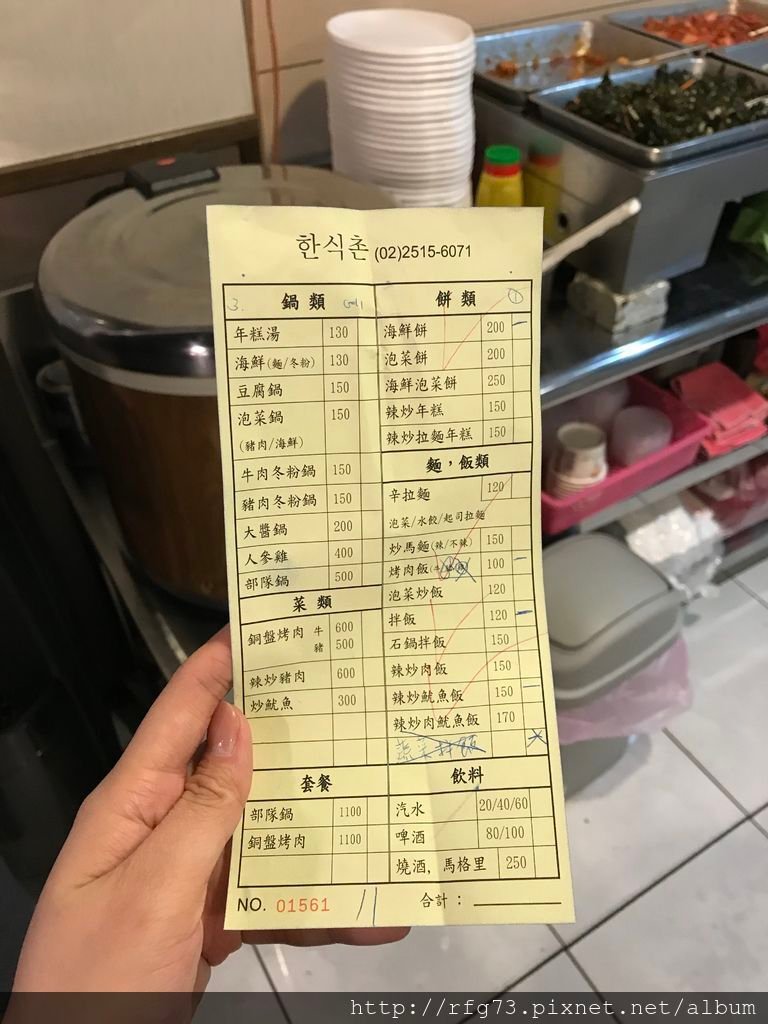 한식촌 (02)2515-6071
3. 鍋 類
年糕湯 130
海鮮(麵/冬粉) 130
豆腐鍋 150
泡菜鍋 150
(豬肉/海鮮)
牛肉冬粉鍋 150
豬肉冬粉鍋 150
大醬鍋 200
人參雞 400
部隊鍋 500
菜 類
銅盤烤肉 牛 600
豬 500
辣炒豬肉 600
炒魷魚 300
套餐
部隊鍋 1100
銅盤烤肉 1100
餅 類 ①
海鮮餅 200
泡菜餅 200
海鮮泡菜餅 250
辣炒年糕 150
辣炒拉麵年糕 150
麵，飯類
辛拉麵 120
泡菜/水餃/起司拉麵
炒馬麵(辣/不辣) 150
烤肉飯(牛 100
泡菜炒飯 120
拌飯 120
石鍋拌飯 150
辣炒肉飯 150
辣炒魷魚飯 150
辣炒肉魷魚飯 170
飲料
汽水 20/40/60
啤酒 80/100
燒酒, 馬格里 250
NO. 01561 11 合計：
http://rfg73.pixnet.net/album